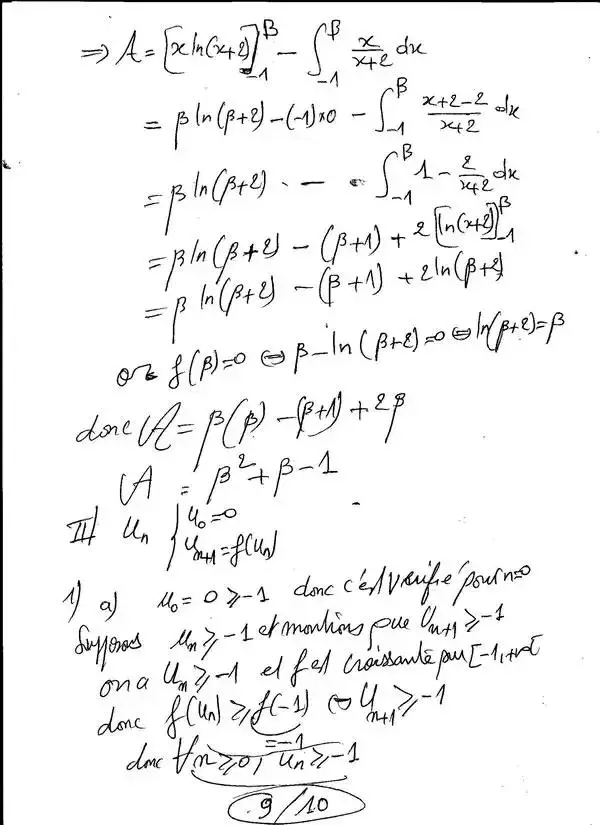 ⇒ A = [x ln(x+2)]_{-1}^{β} - ∫_{-1}^{β} x/(x+2) dx
= β ln(β+2) - (-1)*0 - ∫_{-1}^{β} (x+2-2)/(x+2) dx
= β ln(β+2) - ∫_{-1}^{β} 1 - 2/(x+2) dx
= β ln(β+2) - (β+1) + 2[ln(x+2)]_{-1}^{β}
= β ln(β+2) - (β+1) + 2ln(β+2)
or f(β)=0 ⇔ β-ln(β+2)=0 ⇔ ln(β+2)=β
donc A = β(β) - (β+1) + 2β
A = β² + β - 1
III/ Un { U0=0
Un+1=f(Un)
1) a) U0 = 0 ≥ -1 donc c'est vérifié pour n=0
Supposons Un ≥ -1 et montrons que Un+1 ≥ -1
on a Un ≥ -1 et f est croissante sur [-1,+∞[
donc f(Un) ≥ f(-1) ⇔ Un+1 ≥ -1
=-1
donc ∀n ≥ 0, Un ≥ -1
9/10